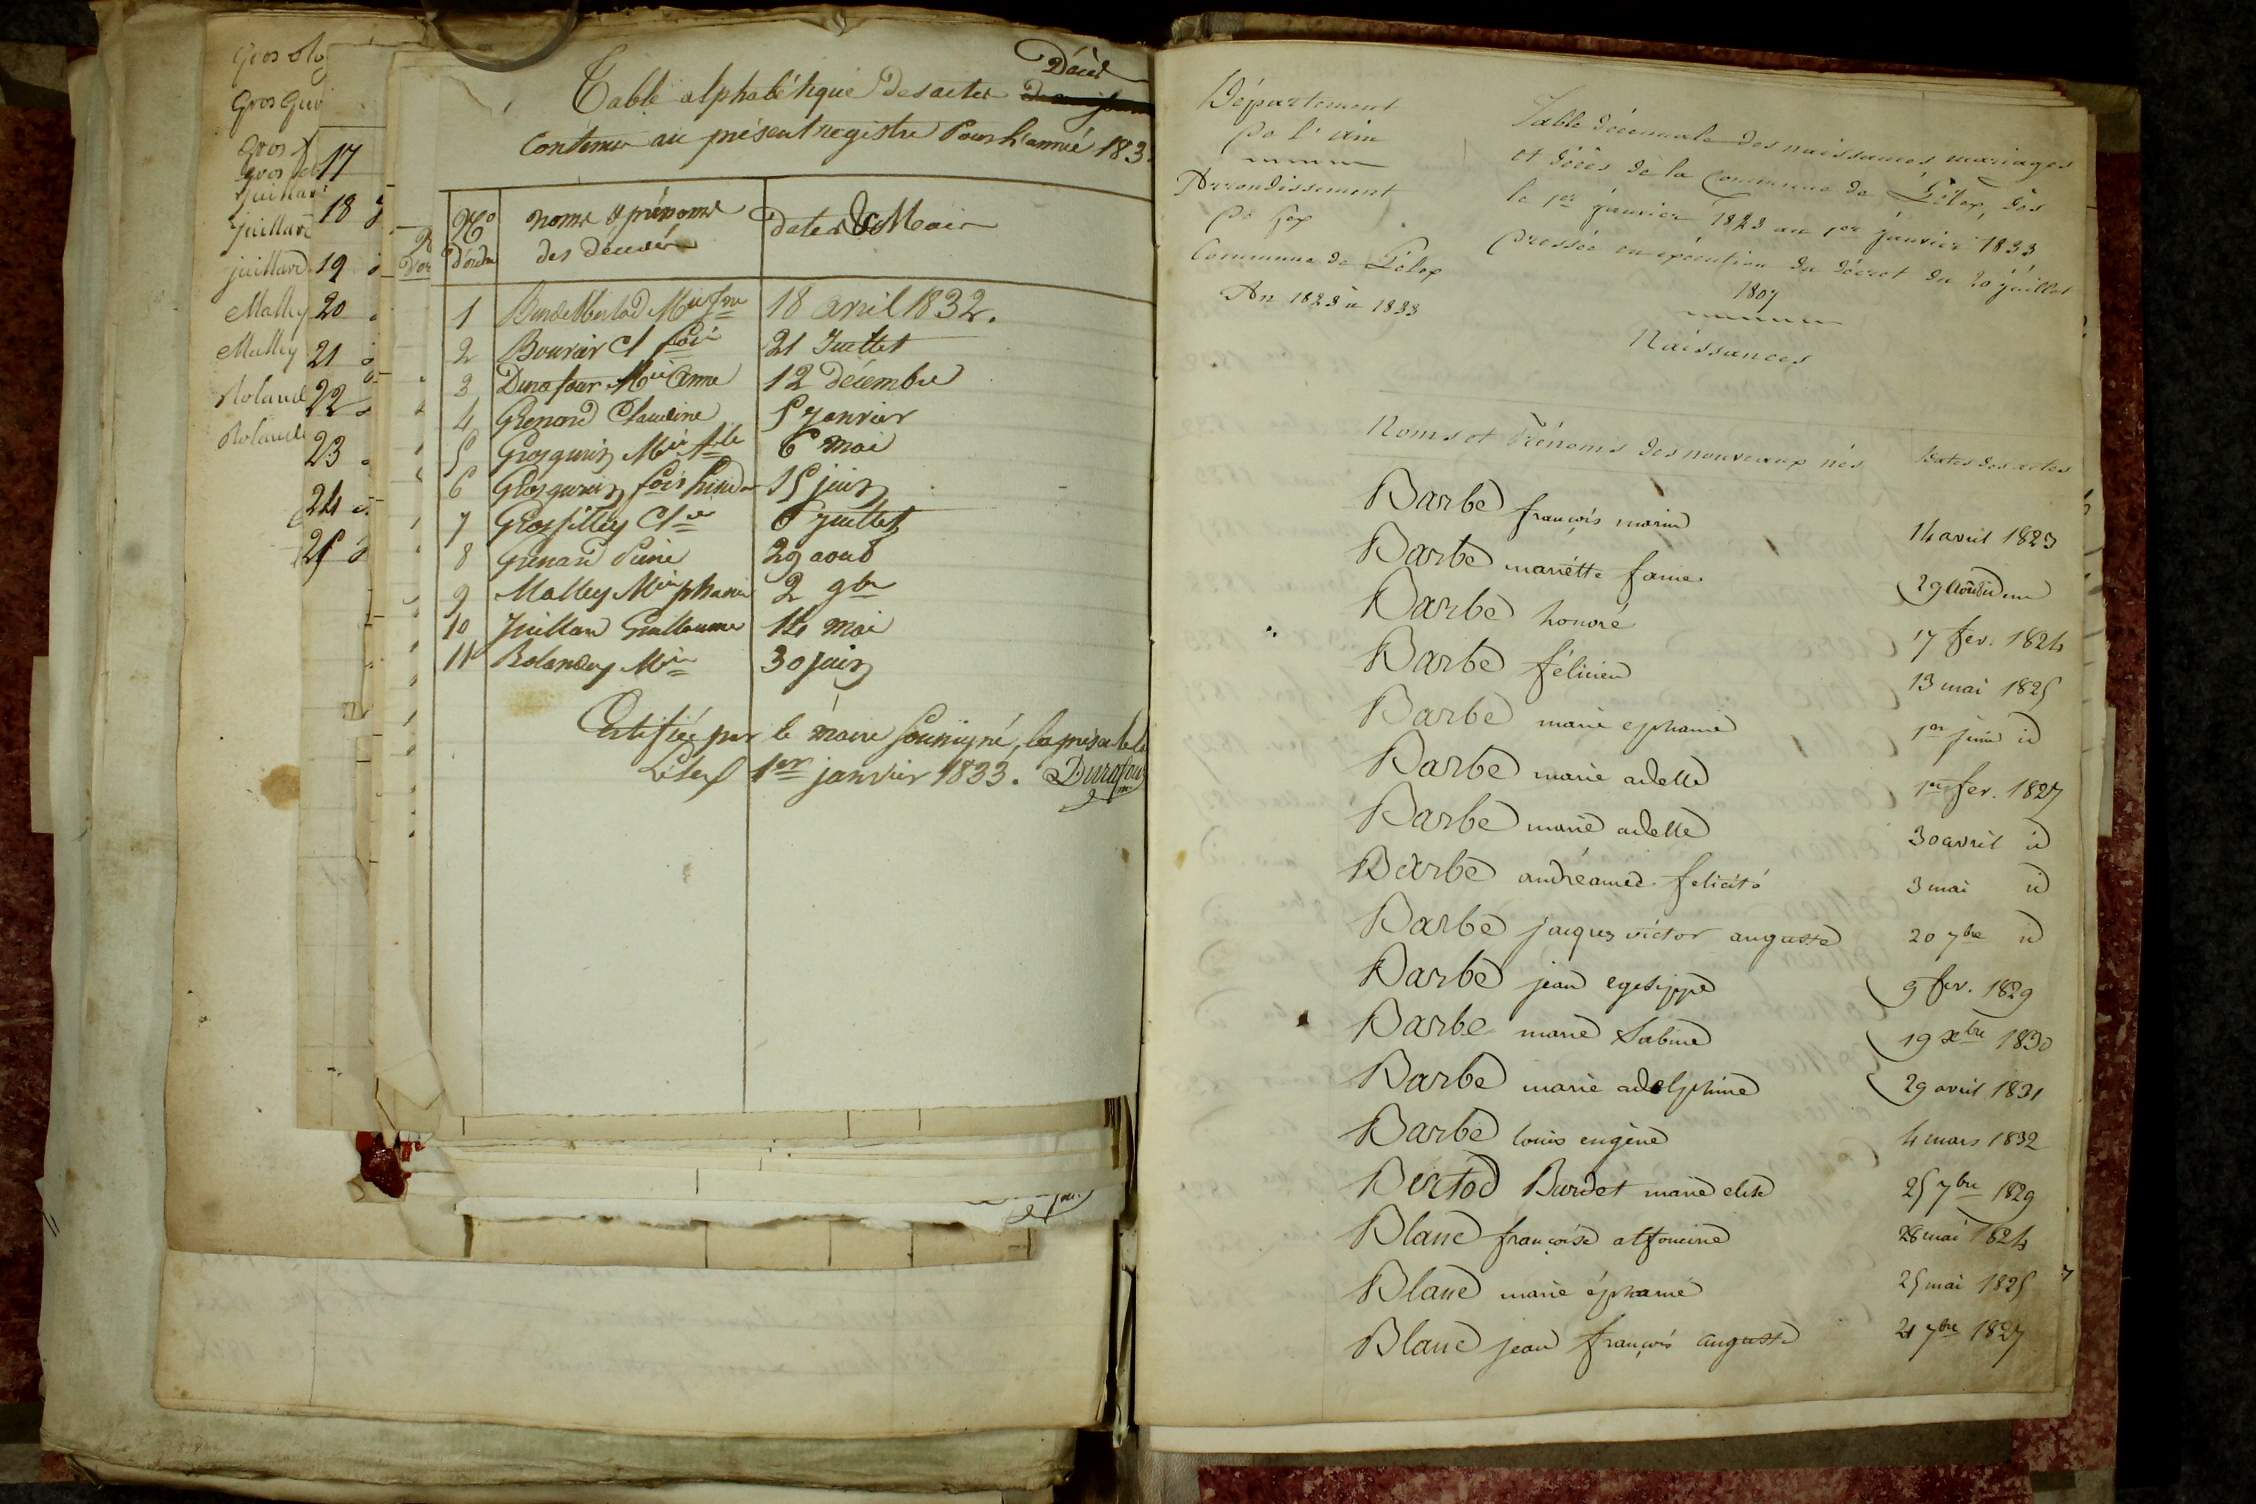 Gros
Gros
Gros
juillard
juillard
Malley
Malley
Roland
Roland
17
18
19
20
21
22
23
24
25
Table alphabétique des actes Décès
Contenu au présent registre Pour l'année 183
No d'ordre
noms & prénoms des décédés
Dates & Mois
1 18 avril 1832.
2 Bouvier Cl fois 21 Juillet
3 Durafour Mie Anne 12 décembre
4 Grenard Claudine 5 Janvier
5 Grosgurin Mie 6 mai
6 Grosgurin fois 15 juin
7 Grosfilley Cl 6 juillet
8 Grenard 29 aout
9 Malley Mie phanie 2 9bre
10 Juillard Guillaume 14 mai
11 Rolandez Mie 30 juin
Certifiée par le maire soussigné, la présente
Lélex 1er janvier 1833. Durafour
Département
De l'Ain
Arrondissement
De Gex
Commune de Lélex
An 1823 à 1833
Table décennale des naissances mariages
et décès de la Commune de Lélex, dès
le 1er janvier 1823 au 1er janvier 1833
dressée en exécution du décret du 20 juillet
1807
Naissances
Noms et Prénoms des nouveaux nés Dates des actes
Barbe françois marie 14 avril 1823
Barbe mariette 29
Barbe honoré 17 fev. 1824
Barbe félicien 13 mai 1825
Barbe marie ephanie 1er juin id
Barbe marie adelle 1er fev. 1827
Barbe marie adelle 30 avril id
Barbe felicité 3 mai id
Barbe jacques victor auguste 20 7bre id
Barbe jean egesippe 9 fev. 1829
Barbe marie Sabine 19 xbre 1830
Barbe marie adelphine 29 avril 1831
Barbe louis eugène 4 mars 1832
Bertod Burdet marie elise 25 7bre 1829
Blanc françoise alfonsine 28 mai 1824
Blanc marie éphanie 25 mai 1825
Blanc jean françois auguste 21 7bre 1827